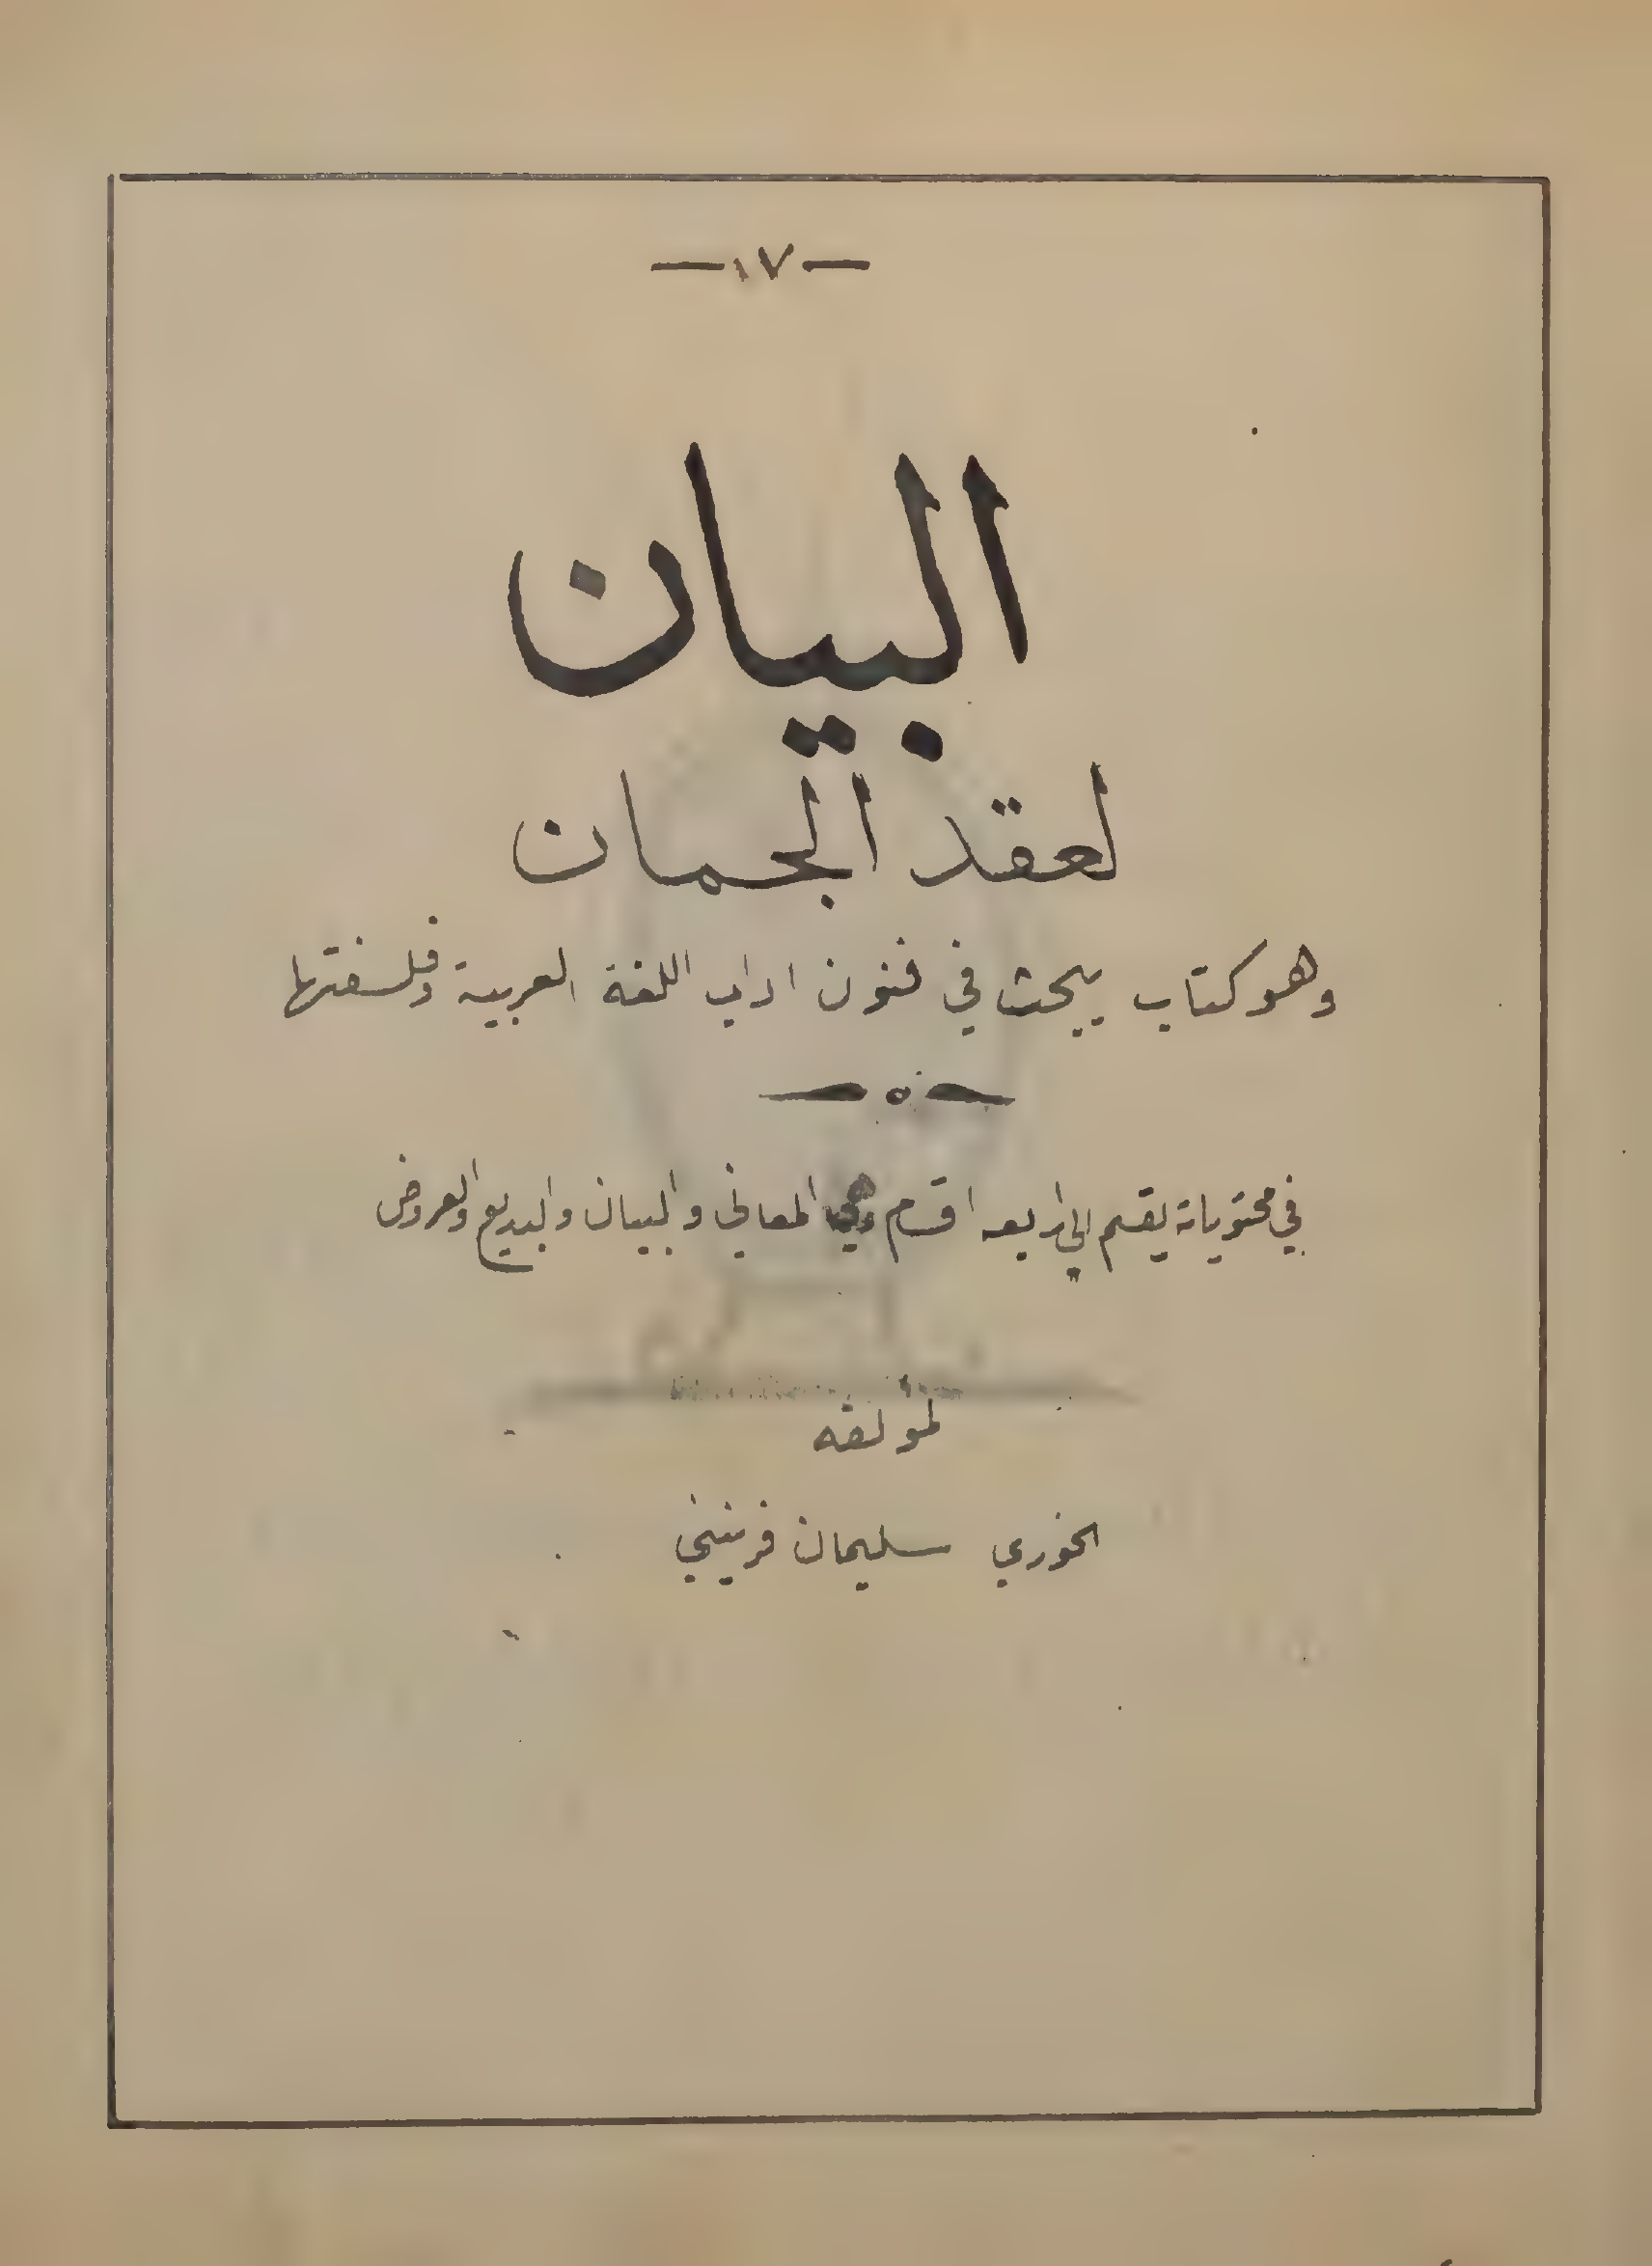 — ٧ —
البيان
لعقد الجمان
وهو كتاب يبحث في فنون اداب اللغة العربية وفلسفتها
في محتوياته يقسم الى اربعه اقسام وهي المعاني والبيان والبديع والعروض
لمؤلفه
الخوري سليمان فرنيني